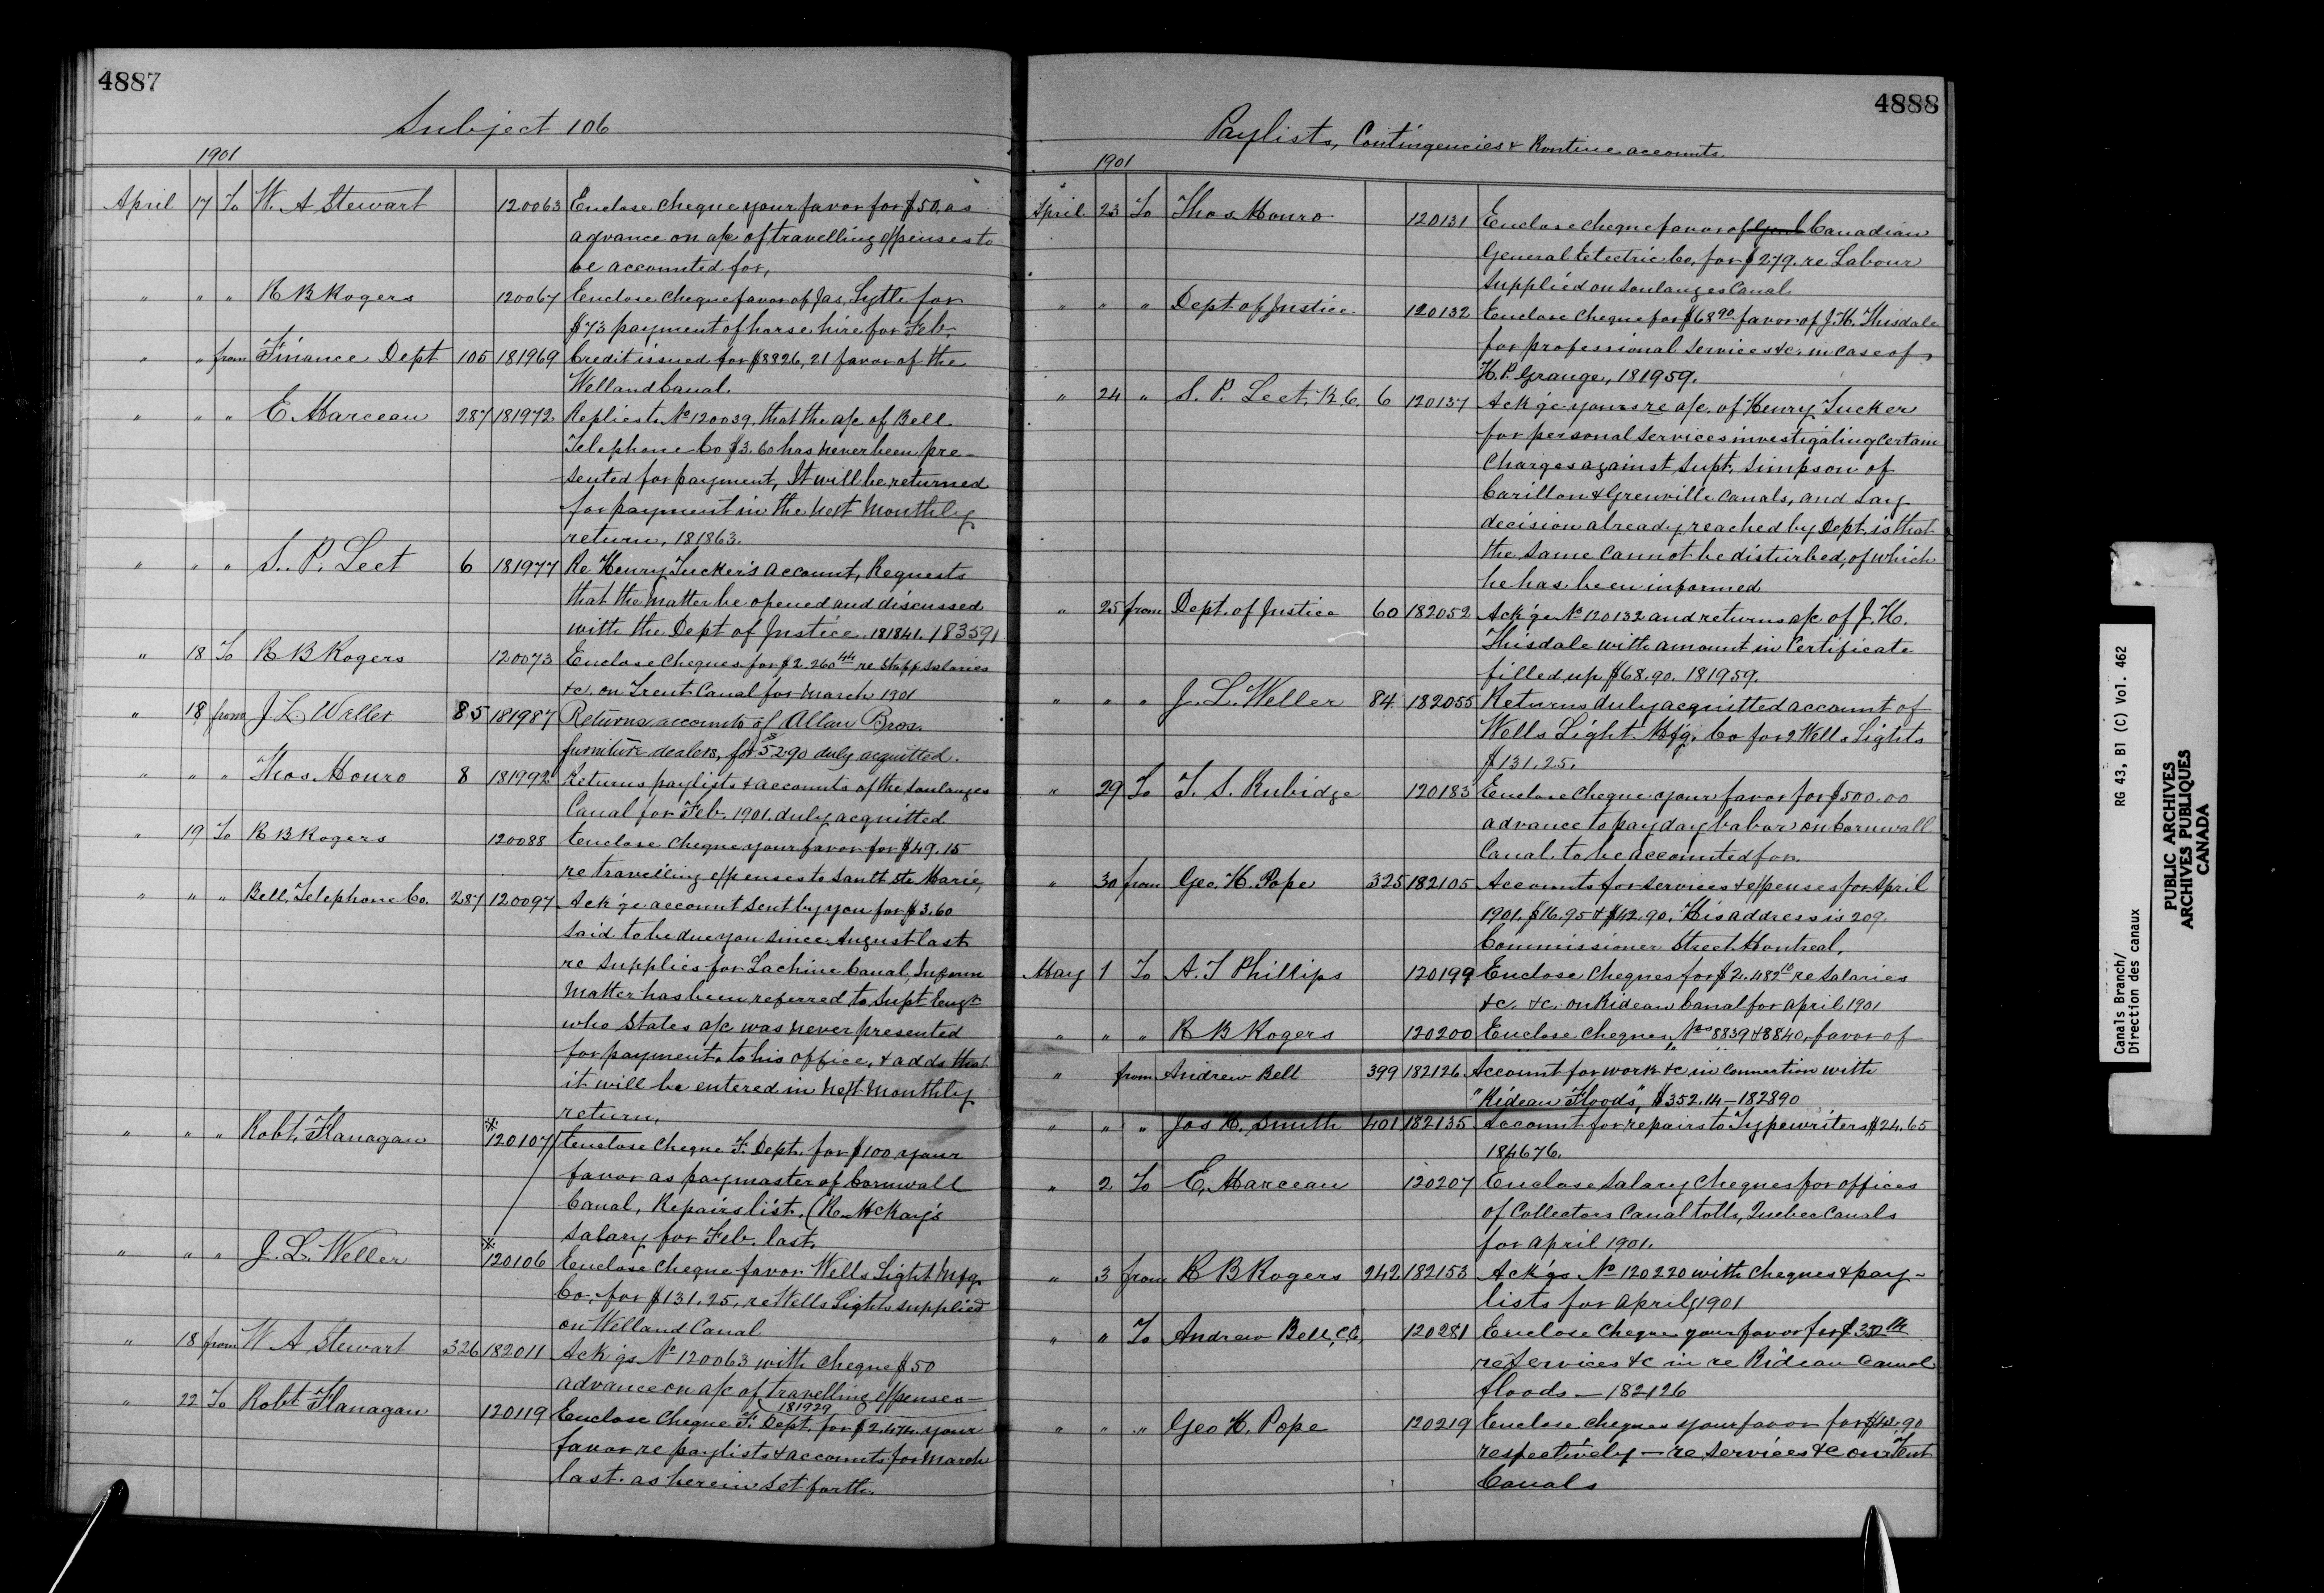 4887
Subject 106
1901
April 17 To W. A Stewart 120063 Enclose cheque your favor for $50. as
advance on a/c of travelling expenses to
be accounted for,
" " " R B Rogers 120067 Enclose cheque favor of Jas. Lytle for
$73 payment of horse hire for Feb,
" " from Finance Dept 105 181969 Credit issued for $8826,21 favor of the
Welland Canal.
" " " E Marceau 287 181972 Replies to No 120039, that the a/c of Bell
Telephone Co $3.60 has never been pre-
sented for payment, It will be returned
for payment in the next Monthly
return, 181863.
" " " S. P. Leet 6 181977 Re Henry Tucker's account, Requests
that the matter be opened and discussed
with the Dept of Justice. 181841. 183591
" 18 To R B Rogers 120073 Enclose cheques for $2.260 44 re Staff Salaries
&c, on Trent Canal for March 1901
" 18 from J L Weller 85 181987 Returns accounts of Allan Bros.
furniture dealers, for $52.90 duly acquitted.
" " " Thos. Monro 8 181992 Returns paylists & accounts of the Soulanges
Canal for Feb. 1901. duly acquitted
" 19 To R B Rogers 120088 Enclose cheque your favor for $49.15
re travelling expenses to Sault Ste Marie,
" " " Bell, Telephone Co. 287 120097 Ack'ge account sent by you for $3.60
said to be due you since August last
re supplies for Lachine Canal, Inform
Matter has been referred to Supt Engr
who states a/c was never presented
for payment to his office, & adds that
it will be entered in next Monthly
return,
" " " Robt. Flanagan 120107 Enclose cheque F. Dept. for $100 your
favor as paymaster of Cornwall
Canal, Repairs list, (R. McKay's
Salary for Feb. last.
" " " J. L. Weller 120106 Enclose cheque favor Wells Light Mfg.
Co, for $131.25, re Wells Lights supplied
on Welland Canal
" 18 from W A Stewart 326 182011 Ack'gs No 120063 with cheque $50
advance on a/c of travelling expenses—
181929
" 22 To Robt Flanagan 120119 Enclose Cheque of F. Dept. for $2.474. your
favor re paylists & accounts for March
last. as herein set forth.
4888
Paylists, Contingencies & Routine accounts
1901
April 23 To Thos Monro 120131 Enclose cheque favor of Canadian
General Electric Co, for $279. re Labour
supplied on Soulanges Canal
" " " Dept of Justice 120132 Enclose cheque for $68 90 favor of J. H. Thisdale
for professional services &c. in case of
H. P. Grange, 181959.
" 24 " S. P. Leet, K.C. 6 120137 Ack'ge yours re a/c. of Henry Tucker
for personal services investigating certain
charges against Supt. Simpson of
Carillon & Grenville Canals, and say
decision already reached by Dept. is that
the same cannot be disturbed, of which
he has been informed
" 25 from Dept. of Justice 60 182052 Ack'ge No 120132 and returns a/c of J. H.
Thisdale with amount in Certificate
filled up $68.90. 181959.
" " " J. L. Weller 84 182055 Returns duly acquitted account of
Wells Light Mfg. Co for 2 Wells Lights
$131.25.
" 29 To T. S. Rubidge 120183 Enclose cheque your favor for $500.00
advance to pay day labor on Cornwall
Canal. to be accounted for.
" 30 from Geo. H. Pope 325 182105 Accounts for services & expenses for April
1901. $16.95 & $42.90. His address is 209
Commissioner Street Montreal,
May 1 To A. T Phillips 120199 Enclose cheques for $2.482 10 re Salaries
&c. &c. on Rideau Canal for april 1901
" " " R B Rogers 120200 Enclose cheques, Nos 8839 & 8840, favor of
" from Andrew Bell 399 182126 Account for work &c in connection with
"Rideau Floods", $352.14—182890
" " " Jas H. Smith 401 182135 Account for repairs to Typewriters $24.65
184676.
" 2 To E. Marceau 120207 Enclose salary cheques for offices
of Collectors Canal tolls, Quebec Canals
for april 1901.
" 3 from R B Rogers 242 182153 Ack'gs No 120220 with cheques & pay-
lists for april, 1901
" " To Andrew Bell, C.E, 120281 Enclose cheque your favor for $352 14
re services &c in re Rideau Canal
floods — 182126
" " " Geo H. Pope 120219 Enclose cheques your favor for $42.90
respectively — re services &c on Trent
Canals
Canals Branch/ RG 43, B1 (C) Vol. 462
Direction des canaux
PUBLIC ARCHIVES
ARCHIVES PUBLIQUES
CANADA